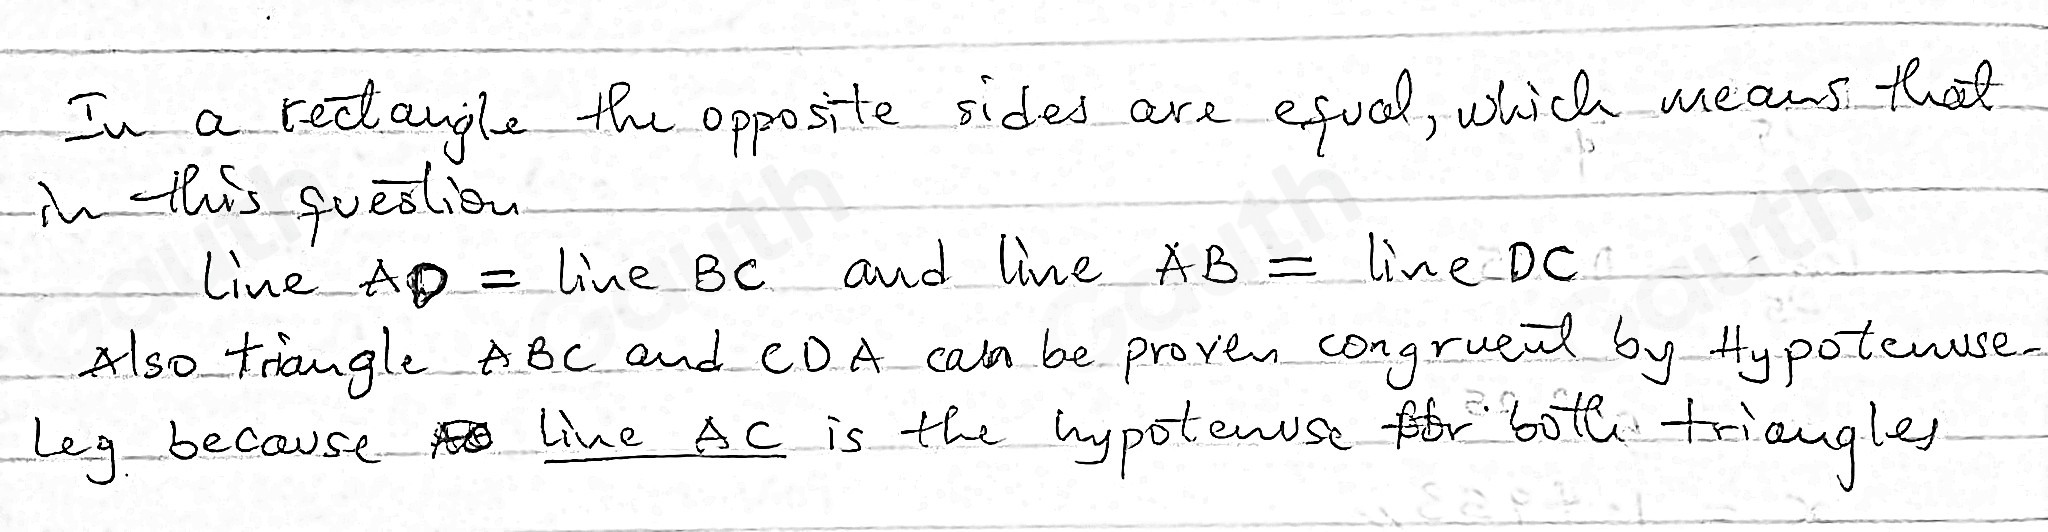 In a rectangle the opposite sides are equal, which means that
in this question
Line AD = line BC and line AB = line DC
Also triangle ABC and CDA can be proven congruent by Hypotenuse-
Leg because line AC is the hypotenuse for both triangles